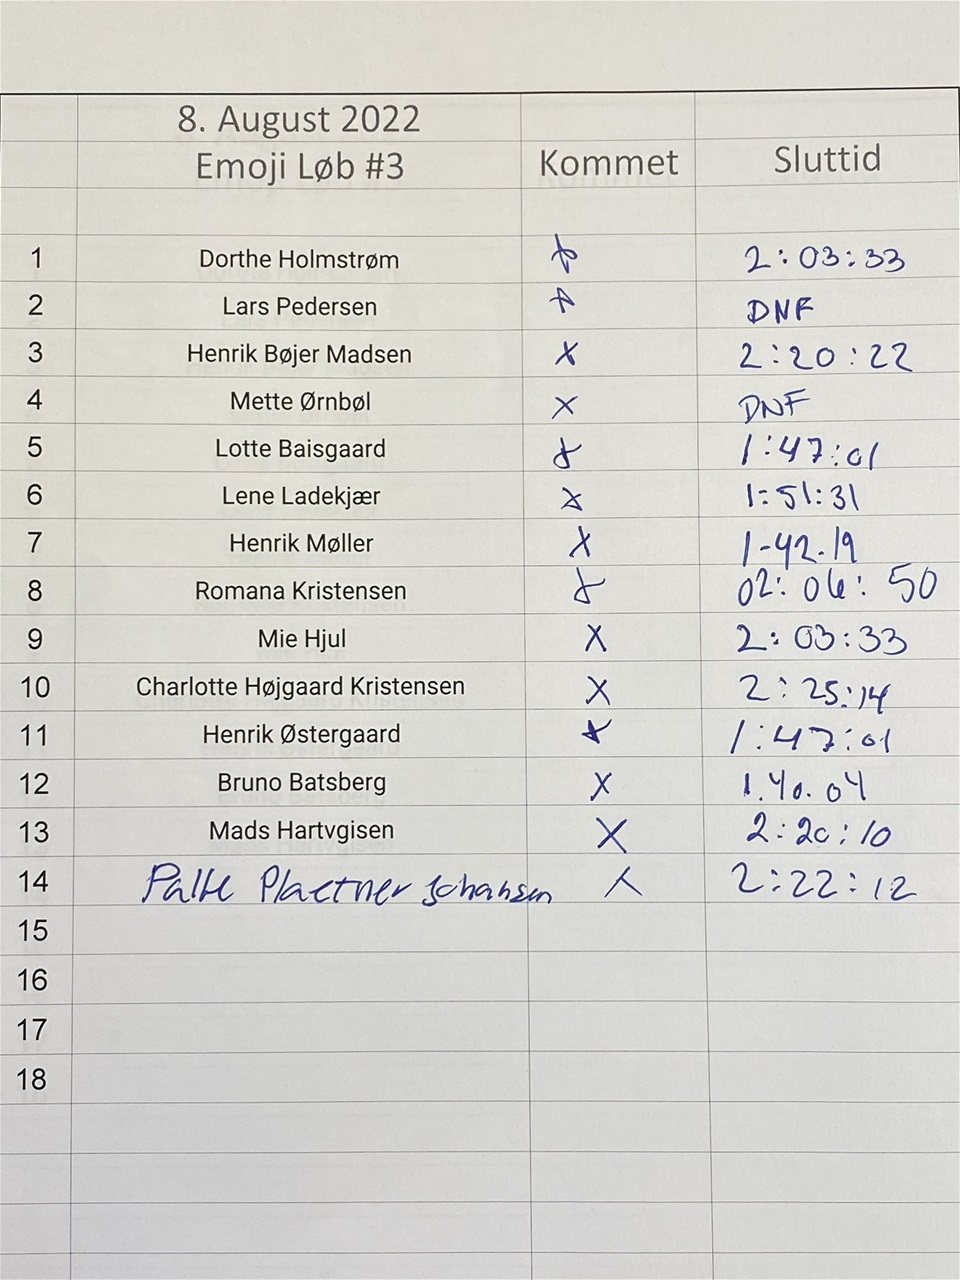 8. August 2022
Emoji Løb #3 Kommet Sluttid
1 Dorthe Holmstrøm X 2:03:33
2 Lars Pedersen X DNF
3 Henrik Bøjer Madsen X 2:20:22
4 Mette Ørnbøl X DNF
5 Lotte Baisgaard X 1:47:01
6 Lene Ladekjær X 1:51:31
7 Henrik Møller X 1-42.19
8 Romana Kristensen X 02:06:50
9 Mie Hjul X 2:03:33
10 Charlotte Højgaard Kristensen X 2:25:14
11 Henrik Østergaard X 1:47:01
12 Bruno Batsberg X 1.40.04
13 Mads Hartvgisen X 2:20:10
14 Palle Plaetner Johansen X 2:22:12
15
16
17
18